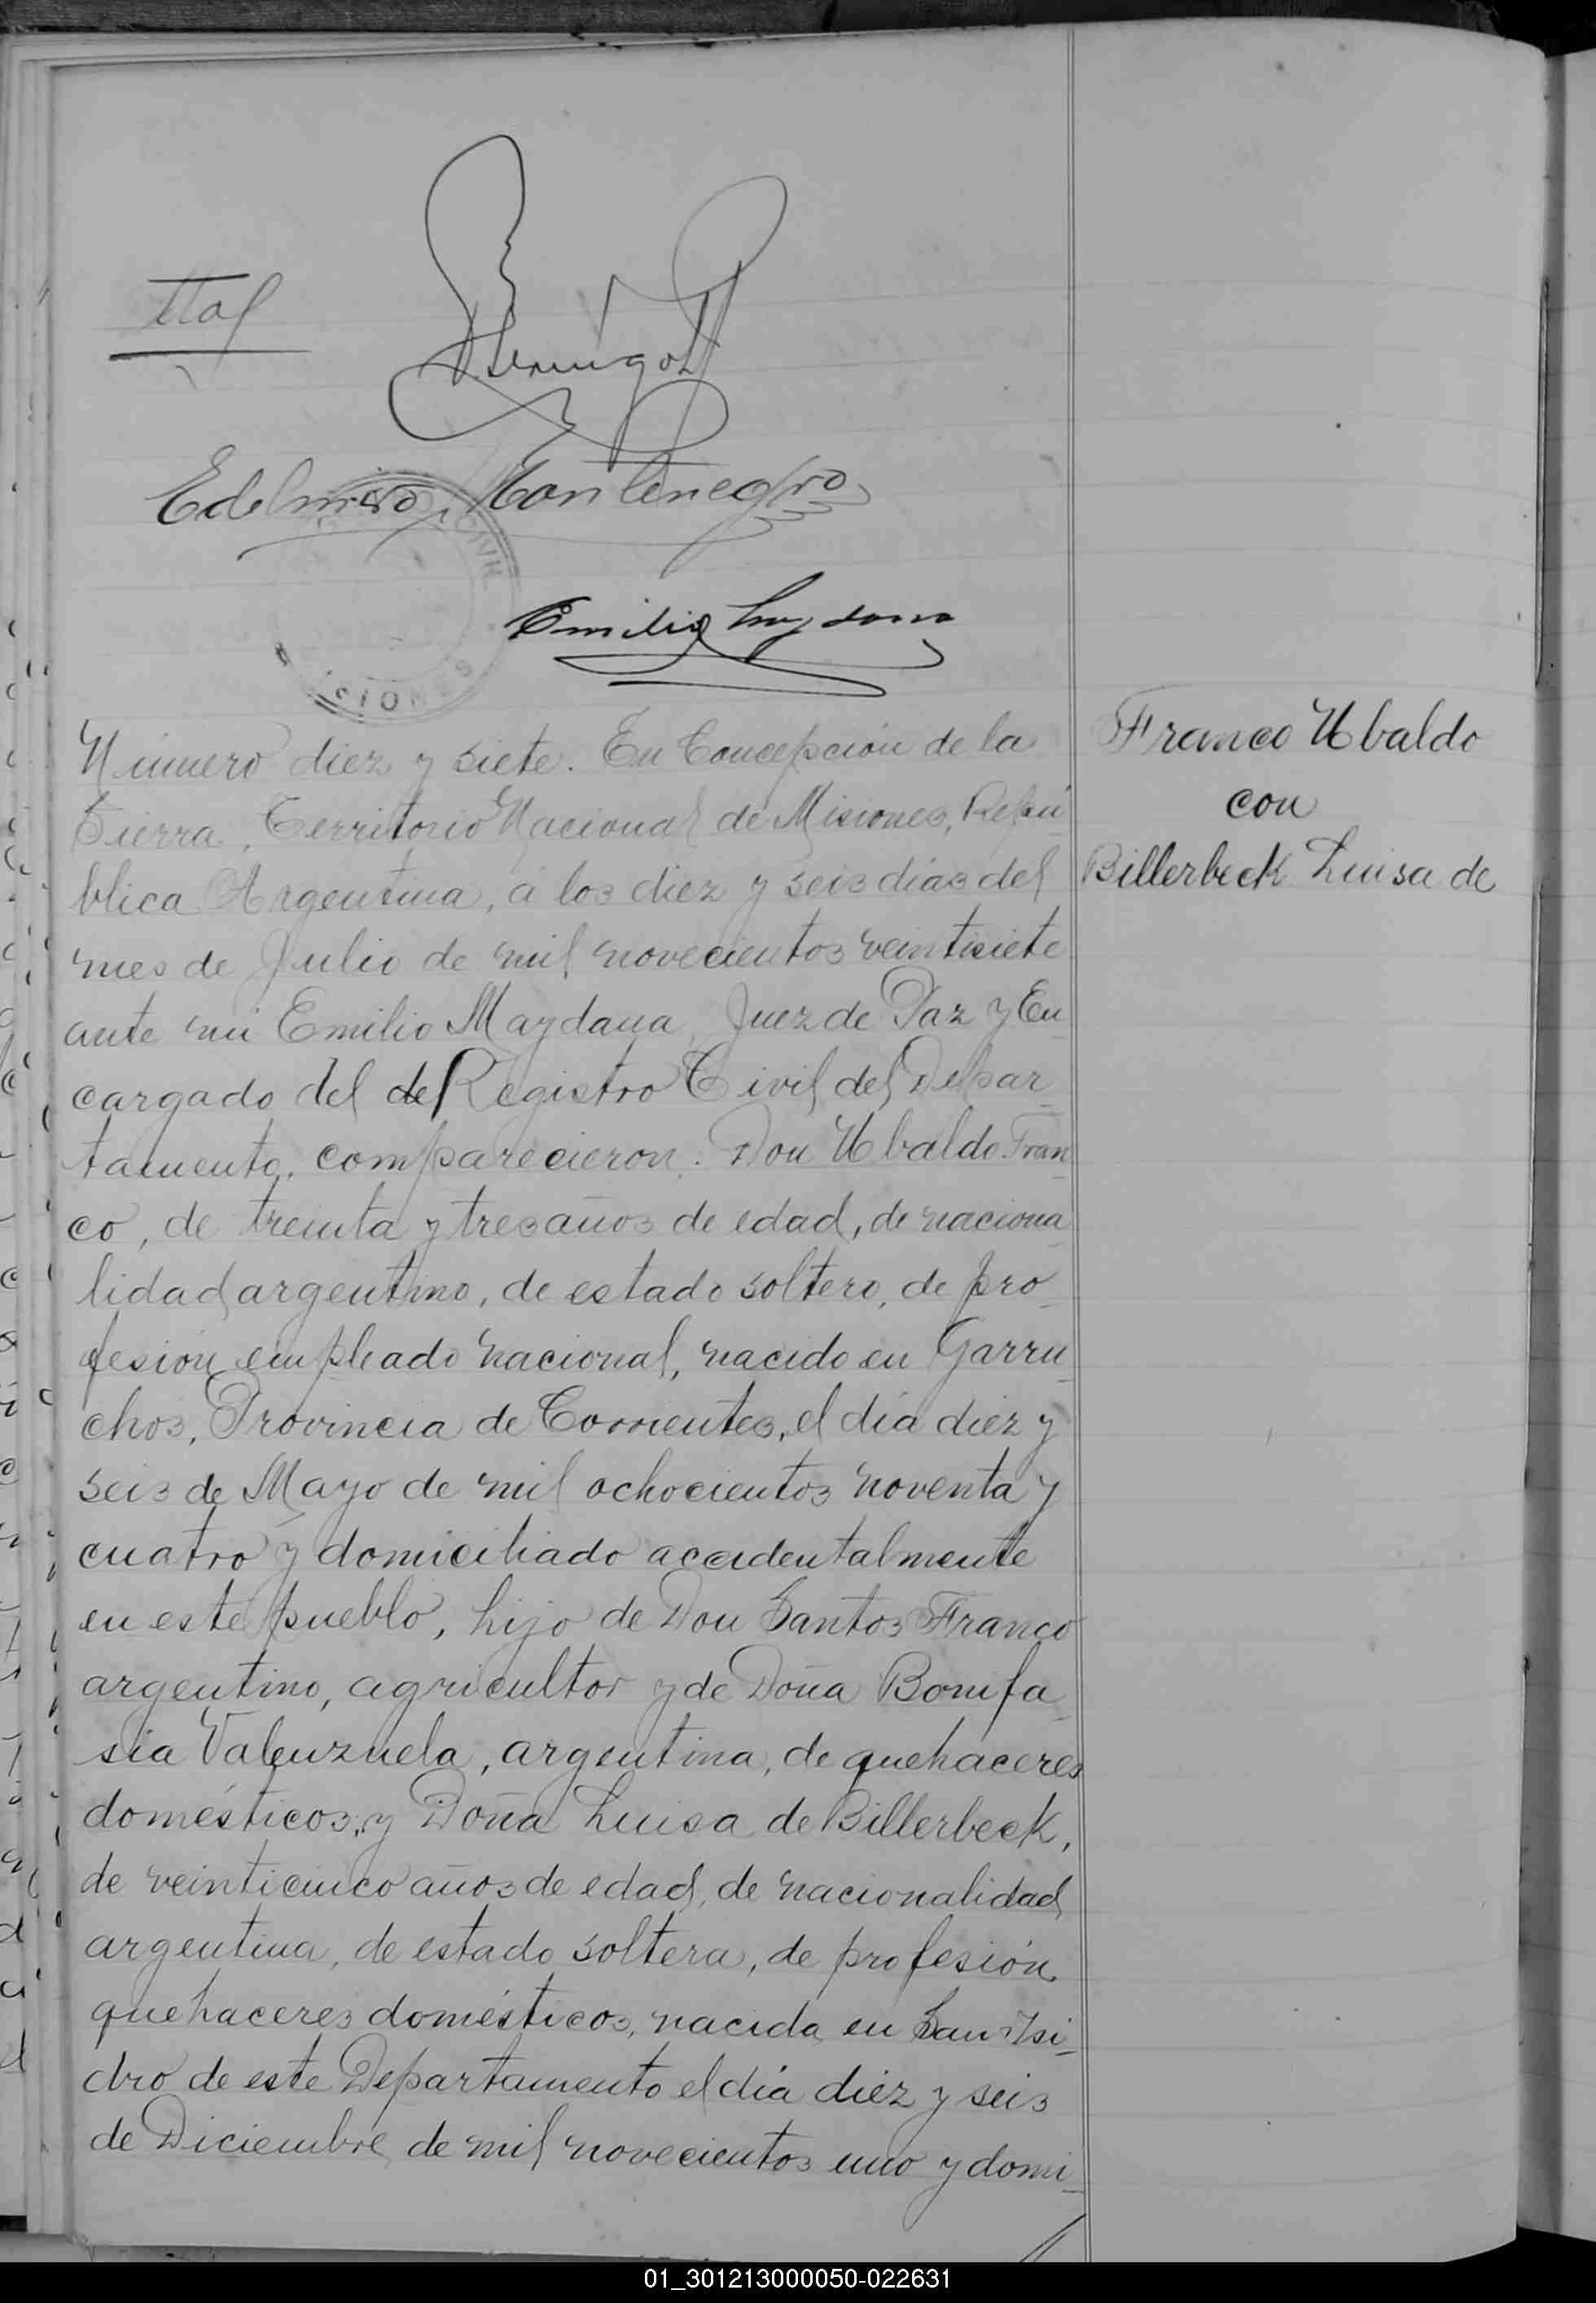 Edelmiro Montenegro
Emilio Maydana
Número diez y siete. En Concepción de la
Sierra, Territorio Nacional de Misiones, Repú
blica Argentina, á los diez y seis días del
mes de Julio de mil novecientos veintisiete
ante mí Emilio Maydana, Juez de Paz y En
cargado del de Registro Civil del Depar
tamento, comparecieron: Don Ubaldo Fran
co, de treinta y tres años de edad, de naciona
lidad argentino, de estado soltero, de pro
fesión empleado nacional, nacido en Garru
chos, Provincia de Corrientes, el día diez y
seis de Mayo de mil ochocientos noventa y
cuatro y domiciliado accidentalmente
en este pueblo, hijo de Don Santos Franco
argentino, agricultor y de Doña Bonifa
sia Valenzuela, argentina, de quehaceres
domésticos, y Doña Luisa de Billerbeck,
de veinticinco años de edad, de nacionalidad
argentina, de estado soltera, de profesión
quehaceres domésticos, nacida en San Isi
dro de este Departamento el día diez y seis
de Diciembre de mil novecientos uno y domi
Franco Ubaldo
con
Billerbeck Luisa de
01_301213000050-022631